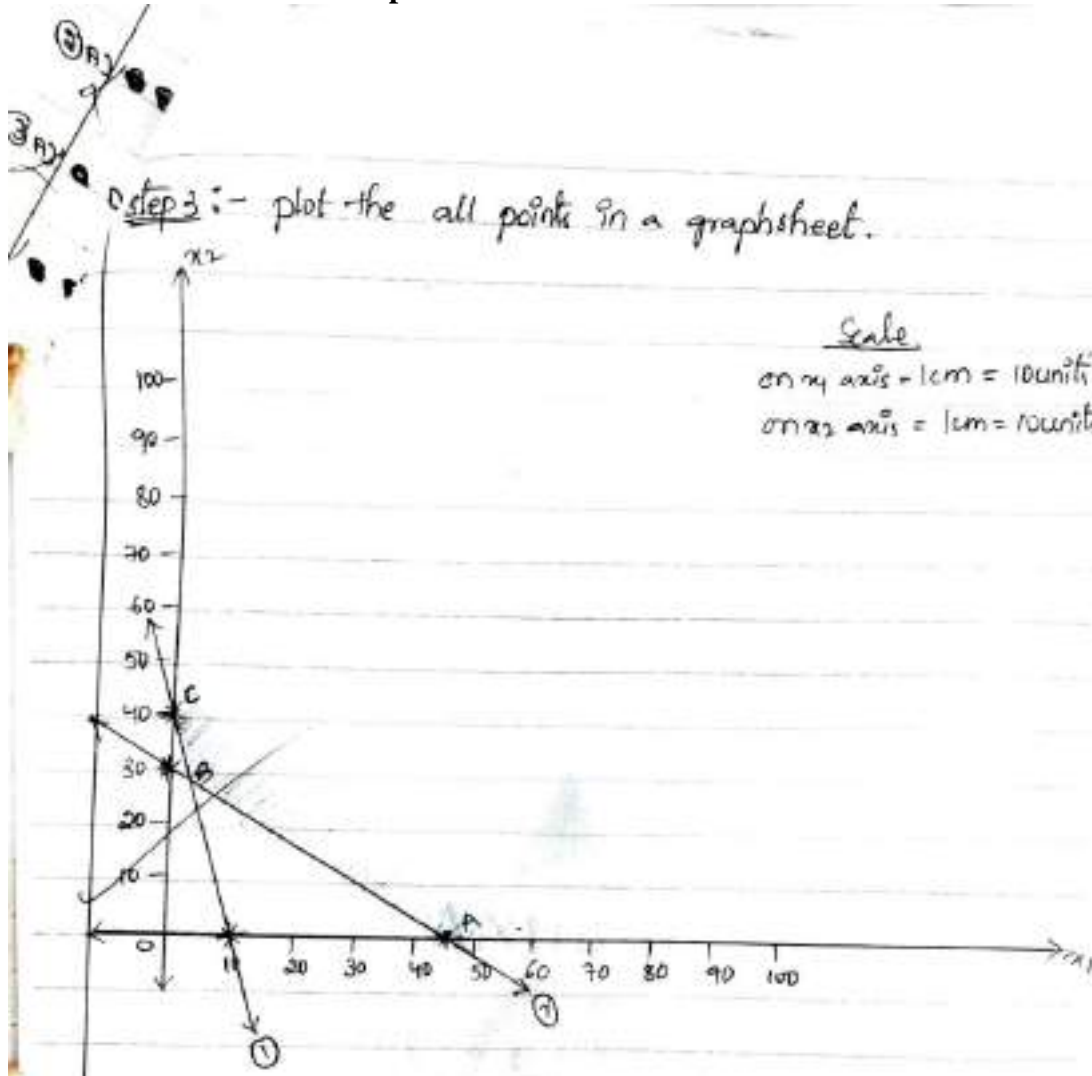 ② A)
③ A)
step 3 :- plot the all points in a graphsheet.
x2
Scale
on x1 axis - 1cm = 10units
on x2 axis = 1cm = 10units
100
90
80
70
60
50
C
40
30
B
20
10
A
0
10 20 30 40 50 60 70 80 90 100
①
②